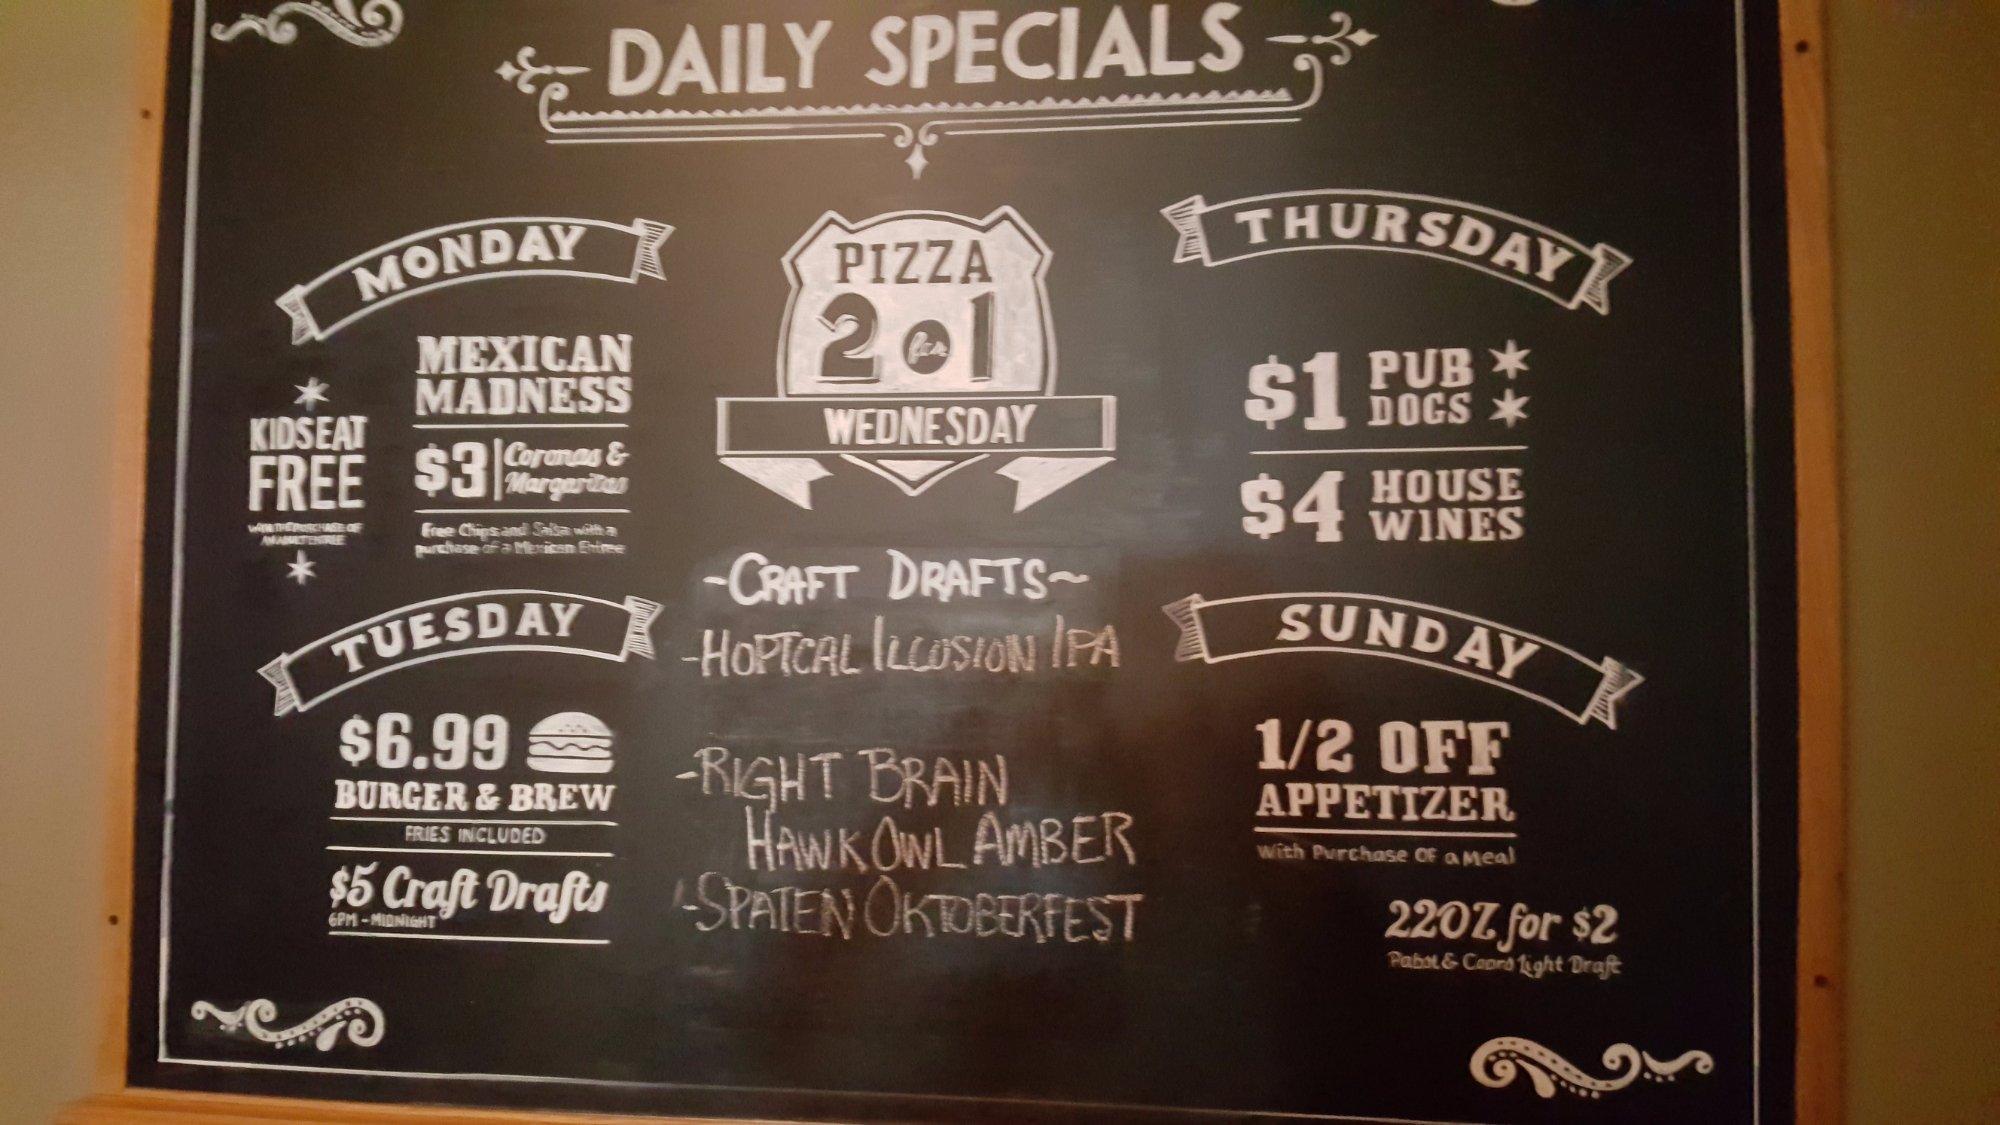 DAILY SPECIALS
MONDAY
MEXICAN
MADNESS
$3 Coronas &
Margaritas
Free Chips and Salsa with a
purchase of a Mexican Entree
KIDS EAT
FREE
WITH THE PURCHASE OF
AN ADULT ENTREE
TUESDAY
$6.99
BURGER & BREW
FRIES INCLUDED
$5 Craft Drafts
6PM - MIDNIGHT
PIZZA
2 for 1
WEDNESDAY
~CRAFT DRAFTS~
-HOPTCAL ILLUSION IPA
-RIGHT BRAIN
HAWK OWL AMBER
-SPATEN OKTOBERFEST
THURSDAY
$1 PUB
DOGS
$4 HOUSE
WINES
SUNDAY
1/2 OFF
APPETIZER
With Purchase OF a Meal
22OZ for $2
Pabst & Coors Light Draft